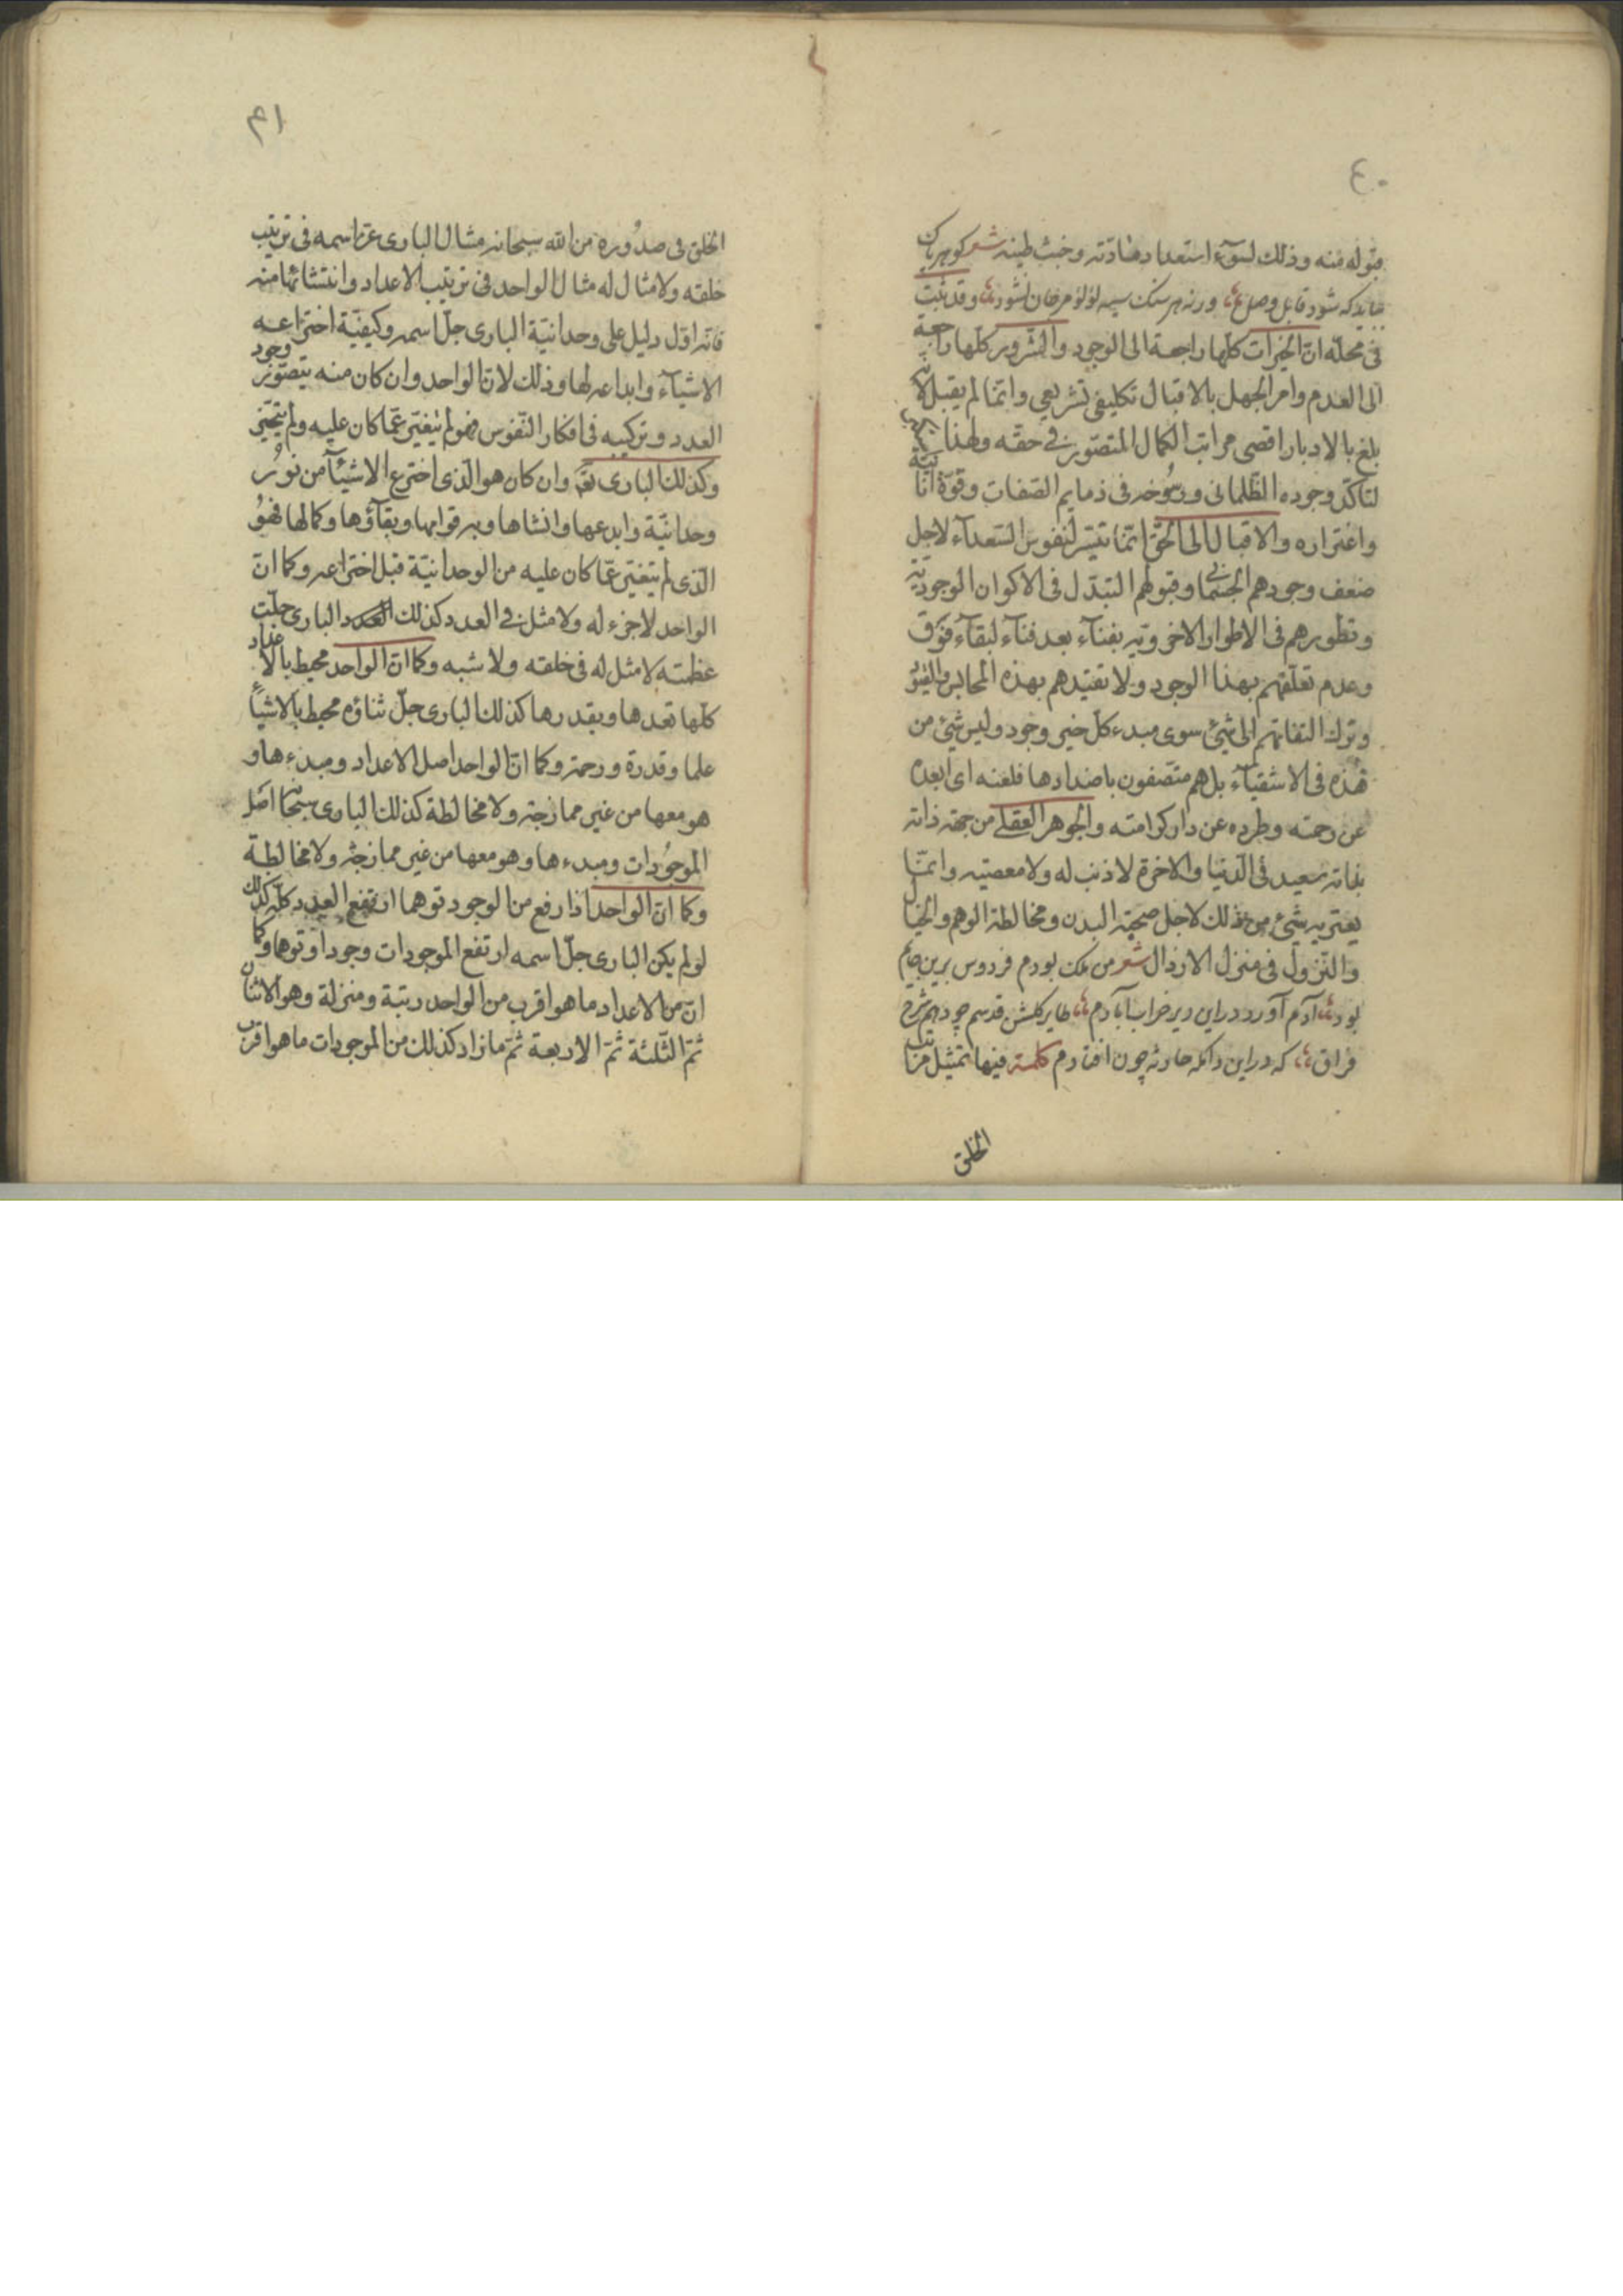 ٤٠
قبوله منه وذلك لسوء استعداد مادّته وخبث طينه شعر كوهر پاك
ببايد كه شود قابل وصل ورنه هر سنك سيه لؤلؤ مرجان نشود وقد ثبت
فى محلّه انّ الخيرات كلّها راجعة الى الوجود والشرور كلّها راجعة
الى العدم وامر الجهل بالاقبال تكليفى تشريعي وانّما لم يقبل لانّه
بلغ بالادبار اقصى مراتب الكمال المتصوّر فى حقّه ولهذا
لتاكّد وجوده الظّلمانى ورسُوخه فى ذمايم الصّفات وقوّة انانيّته
واغتراره والاقبال الى الحقّ انّما يتيسّر لنفوس السّعدآء لاجل
ضعف وجودهم الجسمانى وقبولهم التبدّل فى الاكوان الوجوديّة
وتطورهم فى الاطوار الاخرويّه بفنآء بعد فنآء لبقآء فوق
وعدم تعلّقهم بهذا الوجود ولا تقيّدهم بهذه المحابس والقيود
وترك التفاتهم الى شئ سوى مبدء كلّ خير وجود وليس شئ من
هٰذه فى الاشقيآء بل هم متّصفون باضدادها فلعنه اى ابعده
عن رحمته وطرده عن دار كرامته والجوهر العقلى من جهة ذاته
بذاته سعيد فى الدّنيا والاخرة لا ذنب له ولا معصيّه وانّما
يعتريه شئ من ذلك لاجل صحبة البدن ومخالطة الوهم والخيال
والنّزول فى منزل الارذال شعر من ملك بودم فردوس برين جايم
بود آدم آورد دراين دير خراب آبادم طاير كلشن قدسم چه دهم شرح
فراق كه دراين دامكه حادثه چون افتادم كلمة فيها تمثيل مراتب
الخلق
٤١
الخلق فى صدُوره من الله سبحانه مثال البارى عزّ اسمه فى ترتيب
خلقه ولا مثال له مثال الواحد فى ترتيب الاعداد وانتشائها منه
فانّه اوّل دليل على وحدانيّة البارى جلّ اسمه وكيفيّة اختراعه
الاشيآء وابداعه لها وذلك لانّ الواحد وان كان منه يتصوّر وجود
العدد وتركيبه فى افكار النّفوس فهو لم يتغيّر عمّا كان عليه ولم يتجزّ
وكذلك البارى تعۤ وان كان هو الّذى اخترع الاشيآء من نور
وحدانيّة وابدعها وانشاها وبه قوامها وبقآؤها وكمالها فهو
الّذى لم يتغيّر عمّا كان عليه من الوحدانيّة قبل اختراعه وكما انّ
الواحد لا جزء له ولا مثل فى العدد كذلك البارى جلّت
عظمته لا مثل له فى خلقه ولا شبه وكما انّ الواحد محيط بالاعداد
كلّها تعدها ويقدرها كذلك البارى جلّ ثناؤه محيط بالاشيآء
علما وقدرة ورحمة وكما انّ الواحد اصل الاعداد ومبدءها و
هو معها من غير ممازجة ولا مخالطة كذلك البارى سبحانه اصل
الموجُودات ومبدءها وهو معها من غير ممازجة ولا مخالطة
وكما انّ الواحد اذا رفع من الوجود توهما ارتفع العدد كلّه كذلك
لو لم يكن البارى جلّ اسمه ارتفع الموجودات وجودا وتوهما وكما
انّ من الاعداد ما هو اقرب من الواحد رتبة ومنزلة وهو الاثنان
ثمّ الثّلثة ثمّ الاربعة ثمّ ما زاد كذلك من الموجودات ما هو اقرب